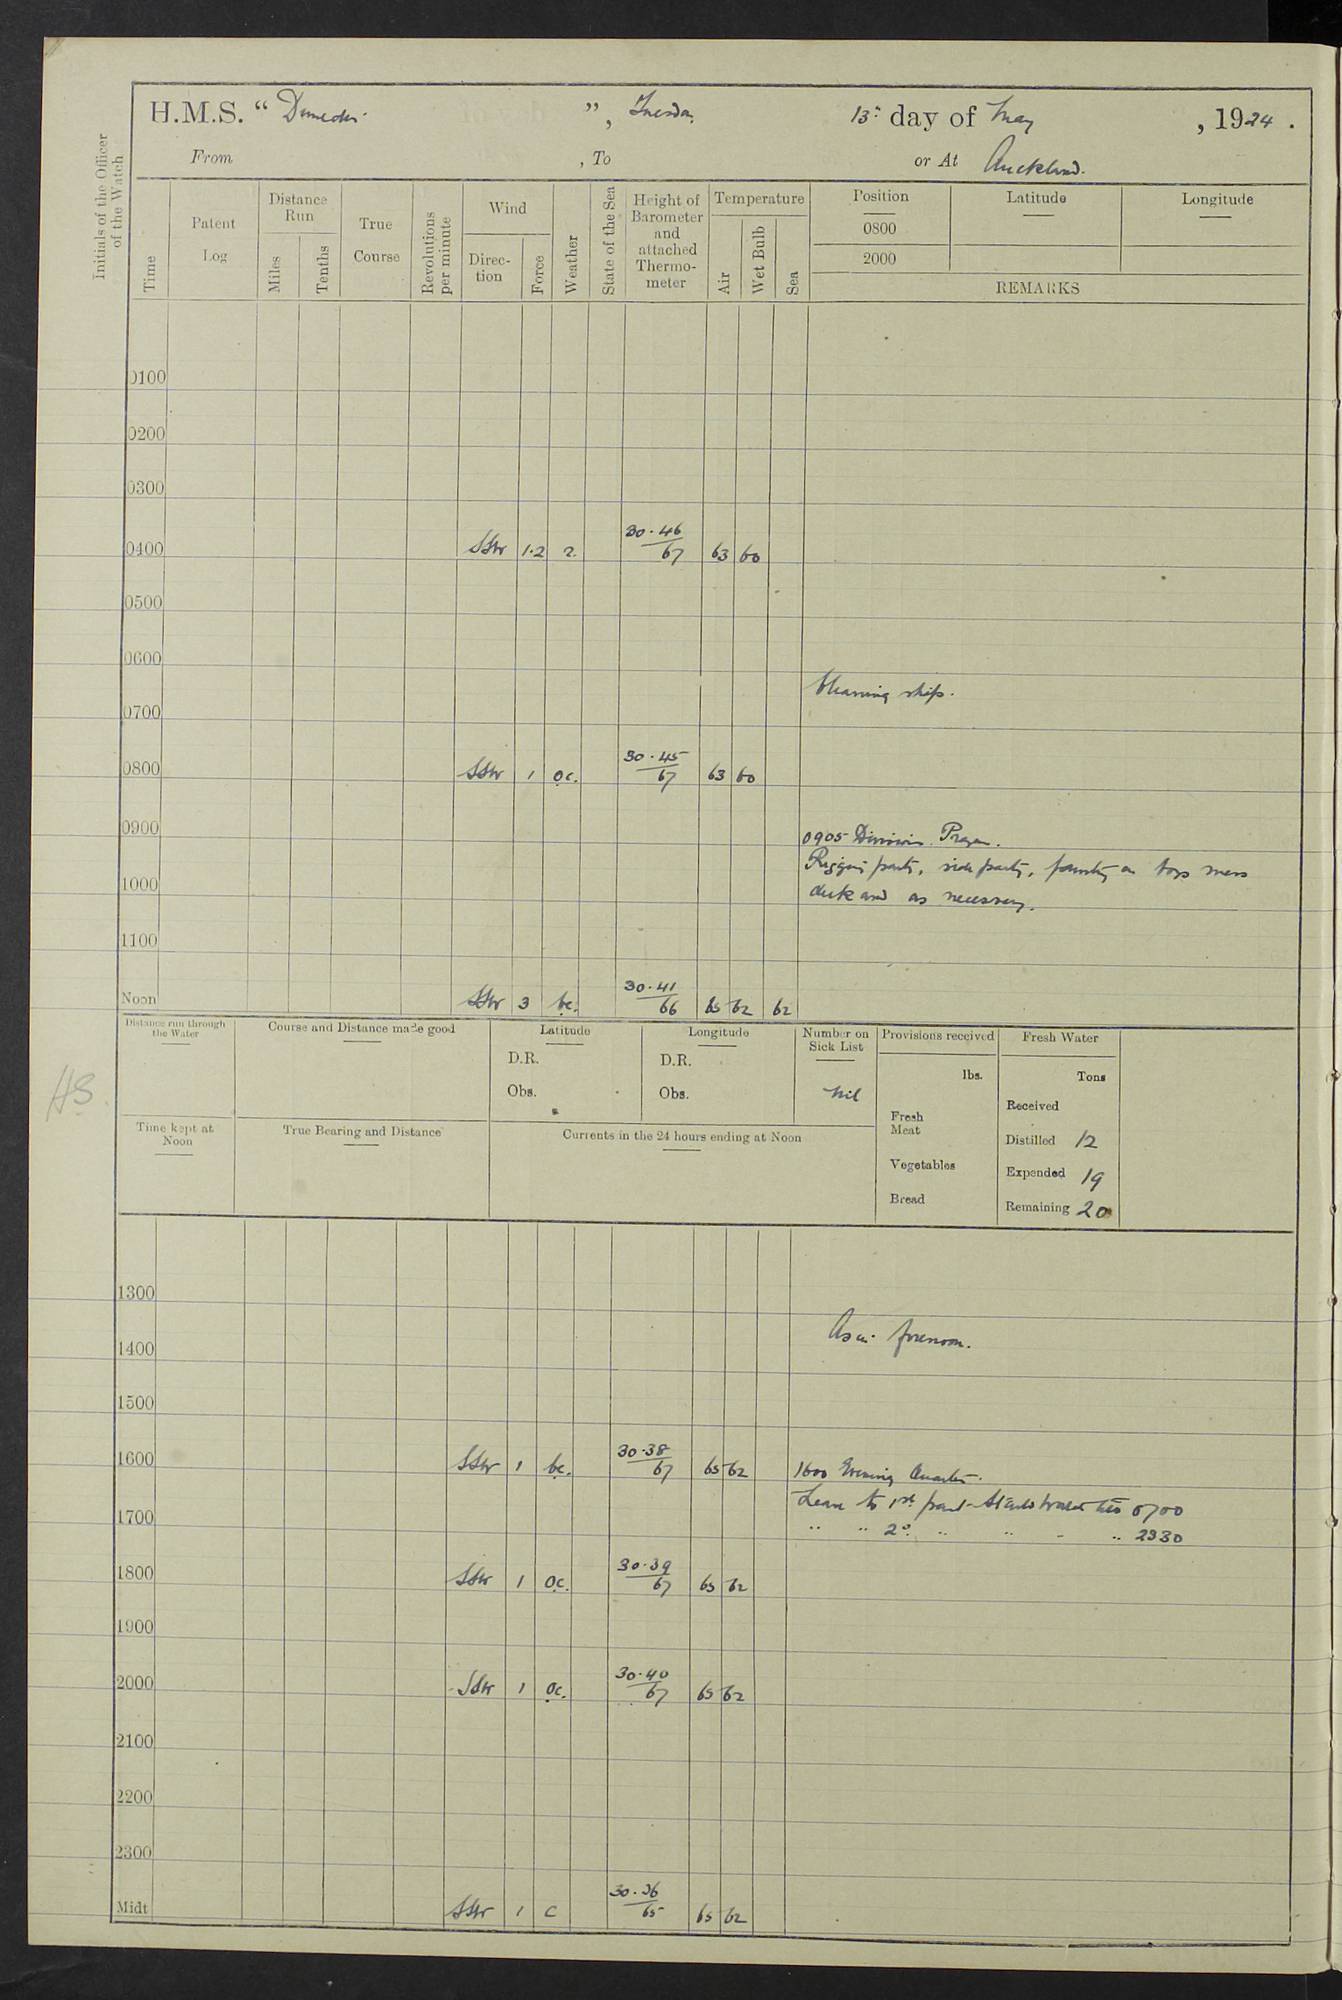 H.M.S. “Dunedin”, Tuesday 13th day of May, 1924.
From , To or At Auckland.
Initials of the Officer of the Watch
Time
Patent Log
Distance Run
Miles
Tenths
True Course
Revolutions per minute
Wind
Direction
Force
Weather
State of the Sea
Height of Barometer and attached Thermometer
Temperature
Air
Wet Bulb
Sea
Position
Latitude
Longitude
0800
2000
REMARKS
0100
0200
0300
0400 SSW 1.2 30.46/67 63 60
0500
0600
Cleaning ship.
0700
0800 SSW 1 oc. 30.45/67 63 60
0900
0905 Divisions. Prayers.
Rigging party, side party, painting on boys mess
1000
deck and as necessary.
1100
Noon SSW 3 bc. 30.41/66 65 62 62
Distance run through the Water
Course and Distance made good
Latitude
D.R.
Obs.
Longitude
D.R.
Obs.
Number on Sick List
nil
Provisions received
lbs.
Fresh Meat
Vegetables
Bread
Fresh Water
Tons
Received
Distilled 12
Expended 19
Remaining
HS.
Time kept at Noon
True Bearing and Distance
Currents in the 24 hours ending at Noon
1300
As in forenoon.
1400
1500
1600 SSW 1 bc. 30.38/67 65 62 1600 Evening Quarters.
Leave to 1st part till 0700
1700
" " 2nd " " " " 2330
1800 SSW 1 oc. 30.39/67 65 62
1900
2000 SSW 1 oc. 30.40/67 65 62
2100
2200
2300
Midt SSW 1 c 30.36/65 65 62